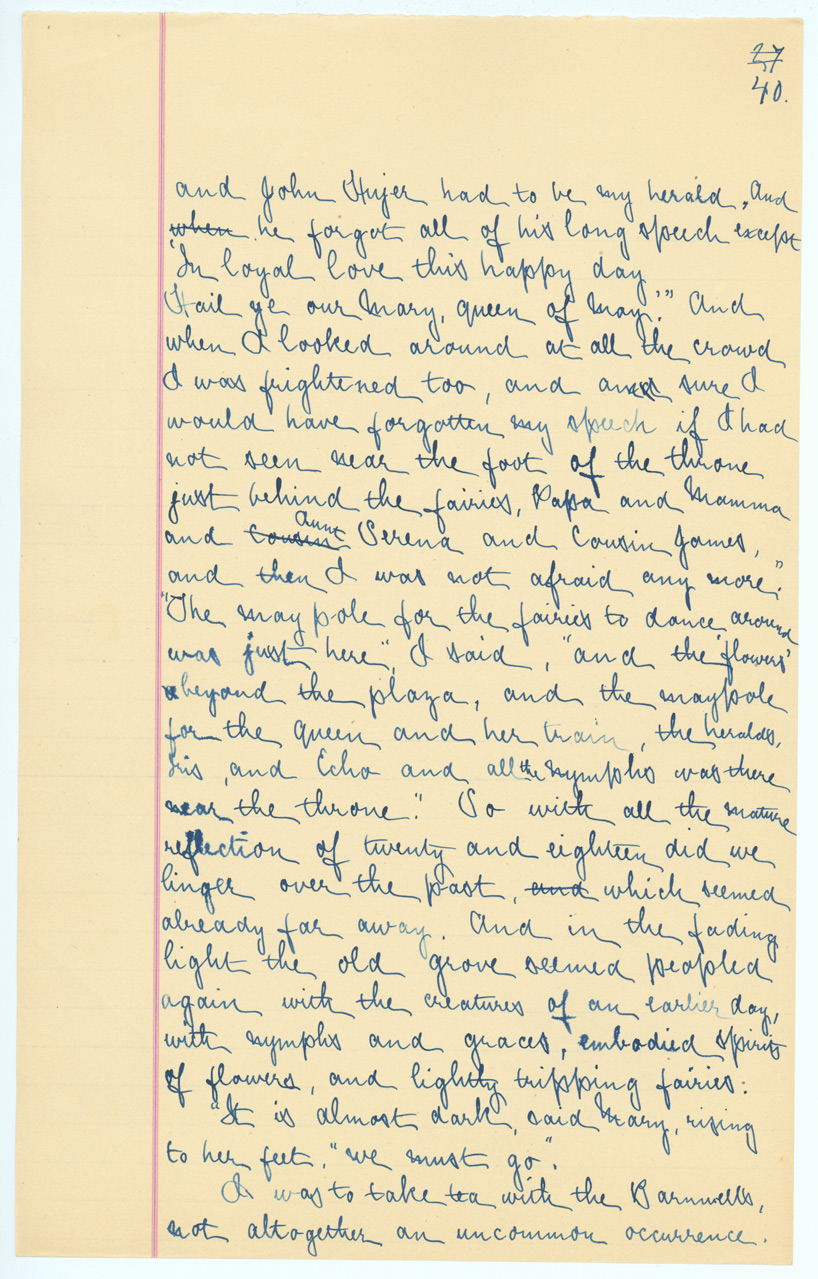 27
40.
and John Hujer had to be my herald, And
when he forgot all of his long speech except
'In loyal love this happy day
Hail ye our Mary, queen of May.'" And
when I looked around at all the crowd
I was frightened too, and am sure I
would have forgotten my speech if I had
not seen near the foot of the throne
just behind the fairies, Papa and Mamma
and Cousin Aunt Serena and Cousin James,
and then I was not afraid any more."
"The may pole for the fairies to dance around
was just here", I said, "and the 'flowers'
beyond the plaza, and the maypole
for the queen and her train, the heralds,
Iris, and Echo and all the nymphs was there
near the throne." So with all the mature
reflection of twenty and eighteen did we
linger over the past, and which seemed
already far away. And in the fading
light the old grove seemed peopled
again with the creatures of an earlier day,
with nymphs and graces, embodied spirits
of flowers, and lightly tripping fairies:
"It is almost dark, said Mary, rising
to her feet, "we must go".
I was to take tea with the Barnwells,
not altogether an uncommon occurrence.